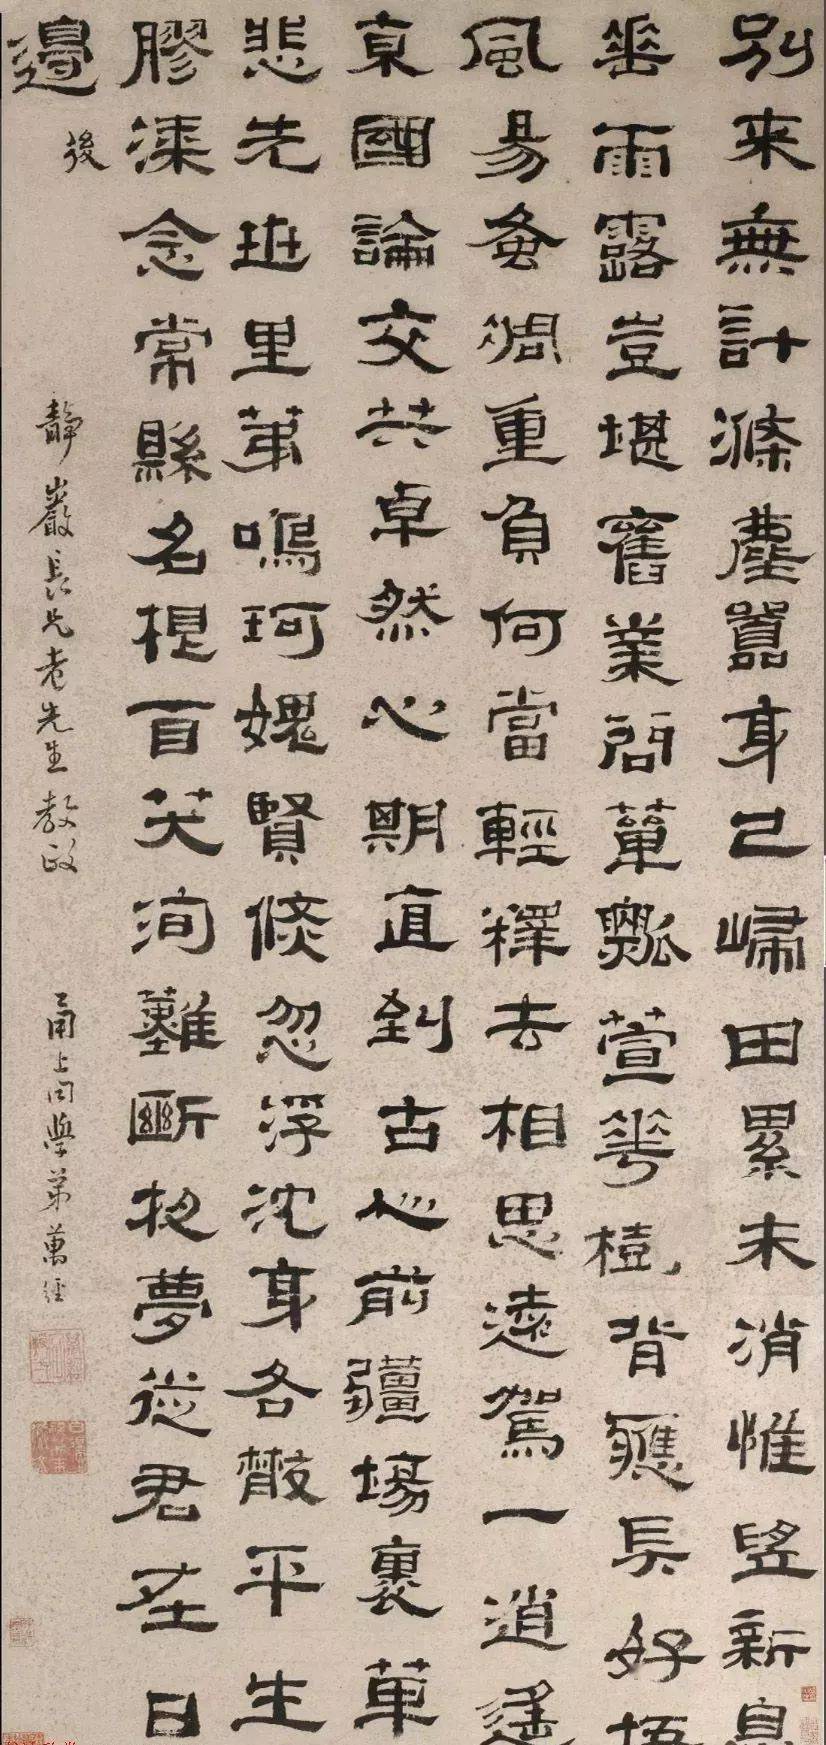 別來無計滌塵囂身已歸田累未消惟望新息
華雨露豈堪舊業問簞瓢萱花樹背應長好梧
風易蚤凋重負何當輕釋去相思遠駕一逍遙
京國論交共卓然心期直到古心前疆場裹革
悲先班里苐鳴珂媿賢倐忽浮沈身各散平生
膠漆念常縣名根百芺洵難斷夜夢從君在日
邊 後
靜巖長兄老先生教政
甬上同學弟萬經